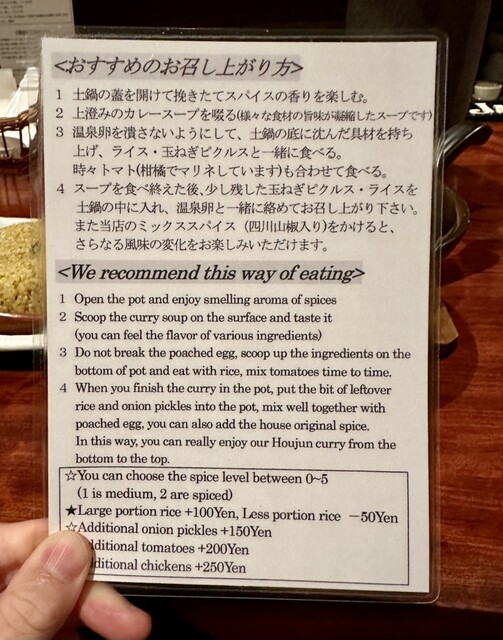 <おすすめのお召し上がり方>
1 土鍋の蓋を開けて挽きたてスパイスの香りを楽しむ。
2 上澄みのカレースープを啜る(様々な食材の旨味が凝縮したスープです)
3 温泉卵を潰さないようにして、土鍋の底に沈んだ具材を持ち
上げ、ライス・玉ねぎピクルスと一緒に食べる。
時々トマト(柑橘でマリネしています)も合わせて食べる。
4 スープを食べ終えた後、少し残した玉ねぎピクルス・ライスを
土鍋の中に入れ、温泉卵と一緒に絡めてお召し上がり下さい。
また当店のミックススパイス（四川山椒入り)をかけると、
さらなる風味の変化をお楽しみいただけます。
<We recommend this way of eating>
1 Open the pot and enjoy smelling aroma of spices
2 Scoop the curry soup on the surface and taste it
(you can feel the flavor of various ingredients)
3 Do not break the poached egg, scoop up the ingredients on the
bottom of pot and eat with rice, mix tomatoes time to time.
4 When you finish the curry in the pot, put the bit of leftover
rice and onion pickles into the pot, mix well together with
poached egg, you can also add the house original spice.
In this way, you can really enjoy our Houjun curry from the
bottom to the top.
☆You can choose the spice level between 0~5
(1 is medium, 2 are spiced)
★Large portion rice +100Yen, Less portion rice －50Yen
☆Additional onion pickles +150Yen
dditional tomatoes +200Yen
dditional chickens +250Yen